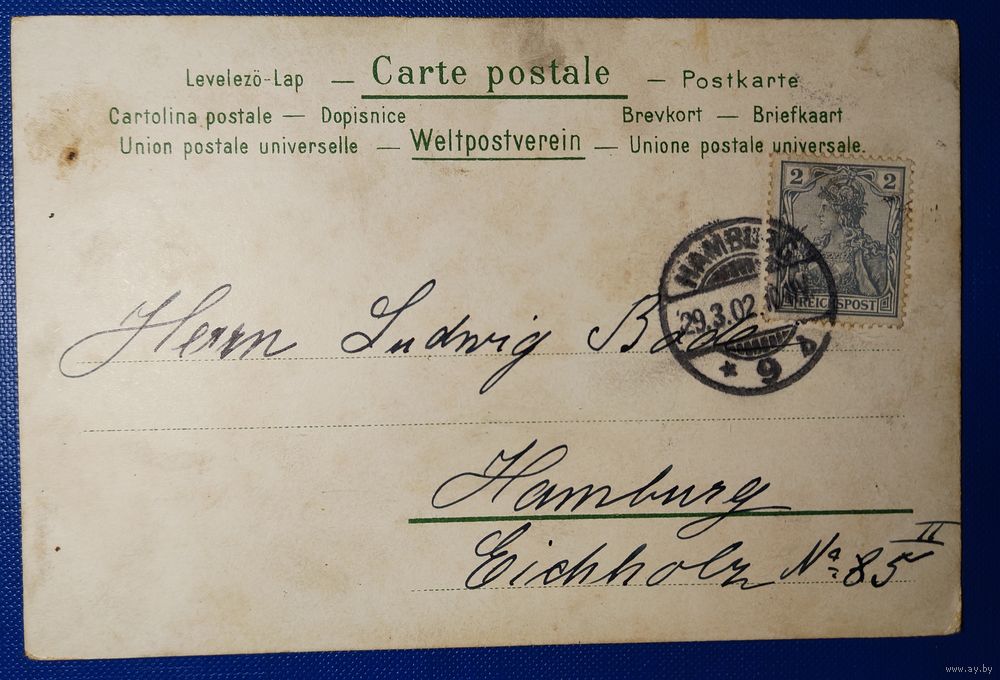 Levelező-Lap — Carte postale — Postkarte
Cartolina postale — Dopisnice Brevkort — Briefkaart
Union postale universelle — Weltpostverein — Unione postale universale.
2 2
REICHSPOST
HAMBURG
29.3.02.
* 9 b
Herrn Ludwig Bode
Hamburg
Eichholz No 85 II
www.ay.by